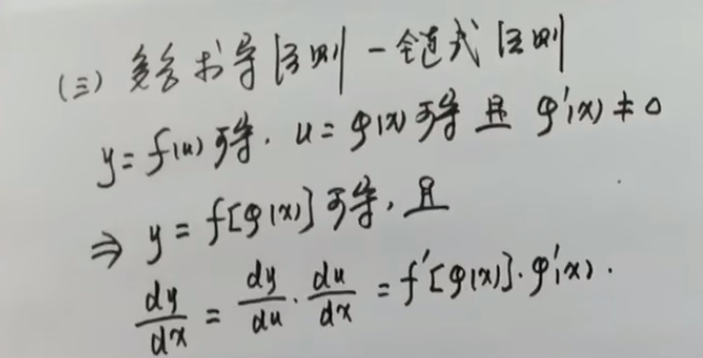 (三) 复合求导法则-链式法则
y=f(u)可导. u=φ(x)可导且 φ'(x)≠0
⇒ y=f[φ(x)]可导,且
dy/dx = dy/du · du/dx = f'[φ(x)]·φ'(x).